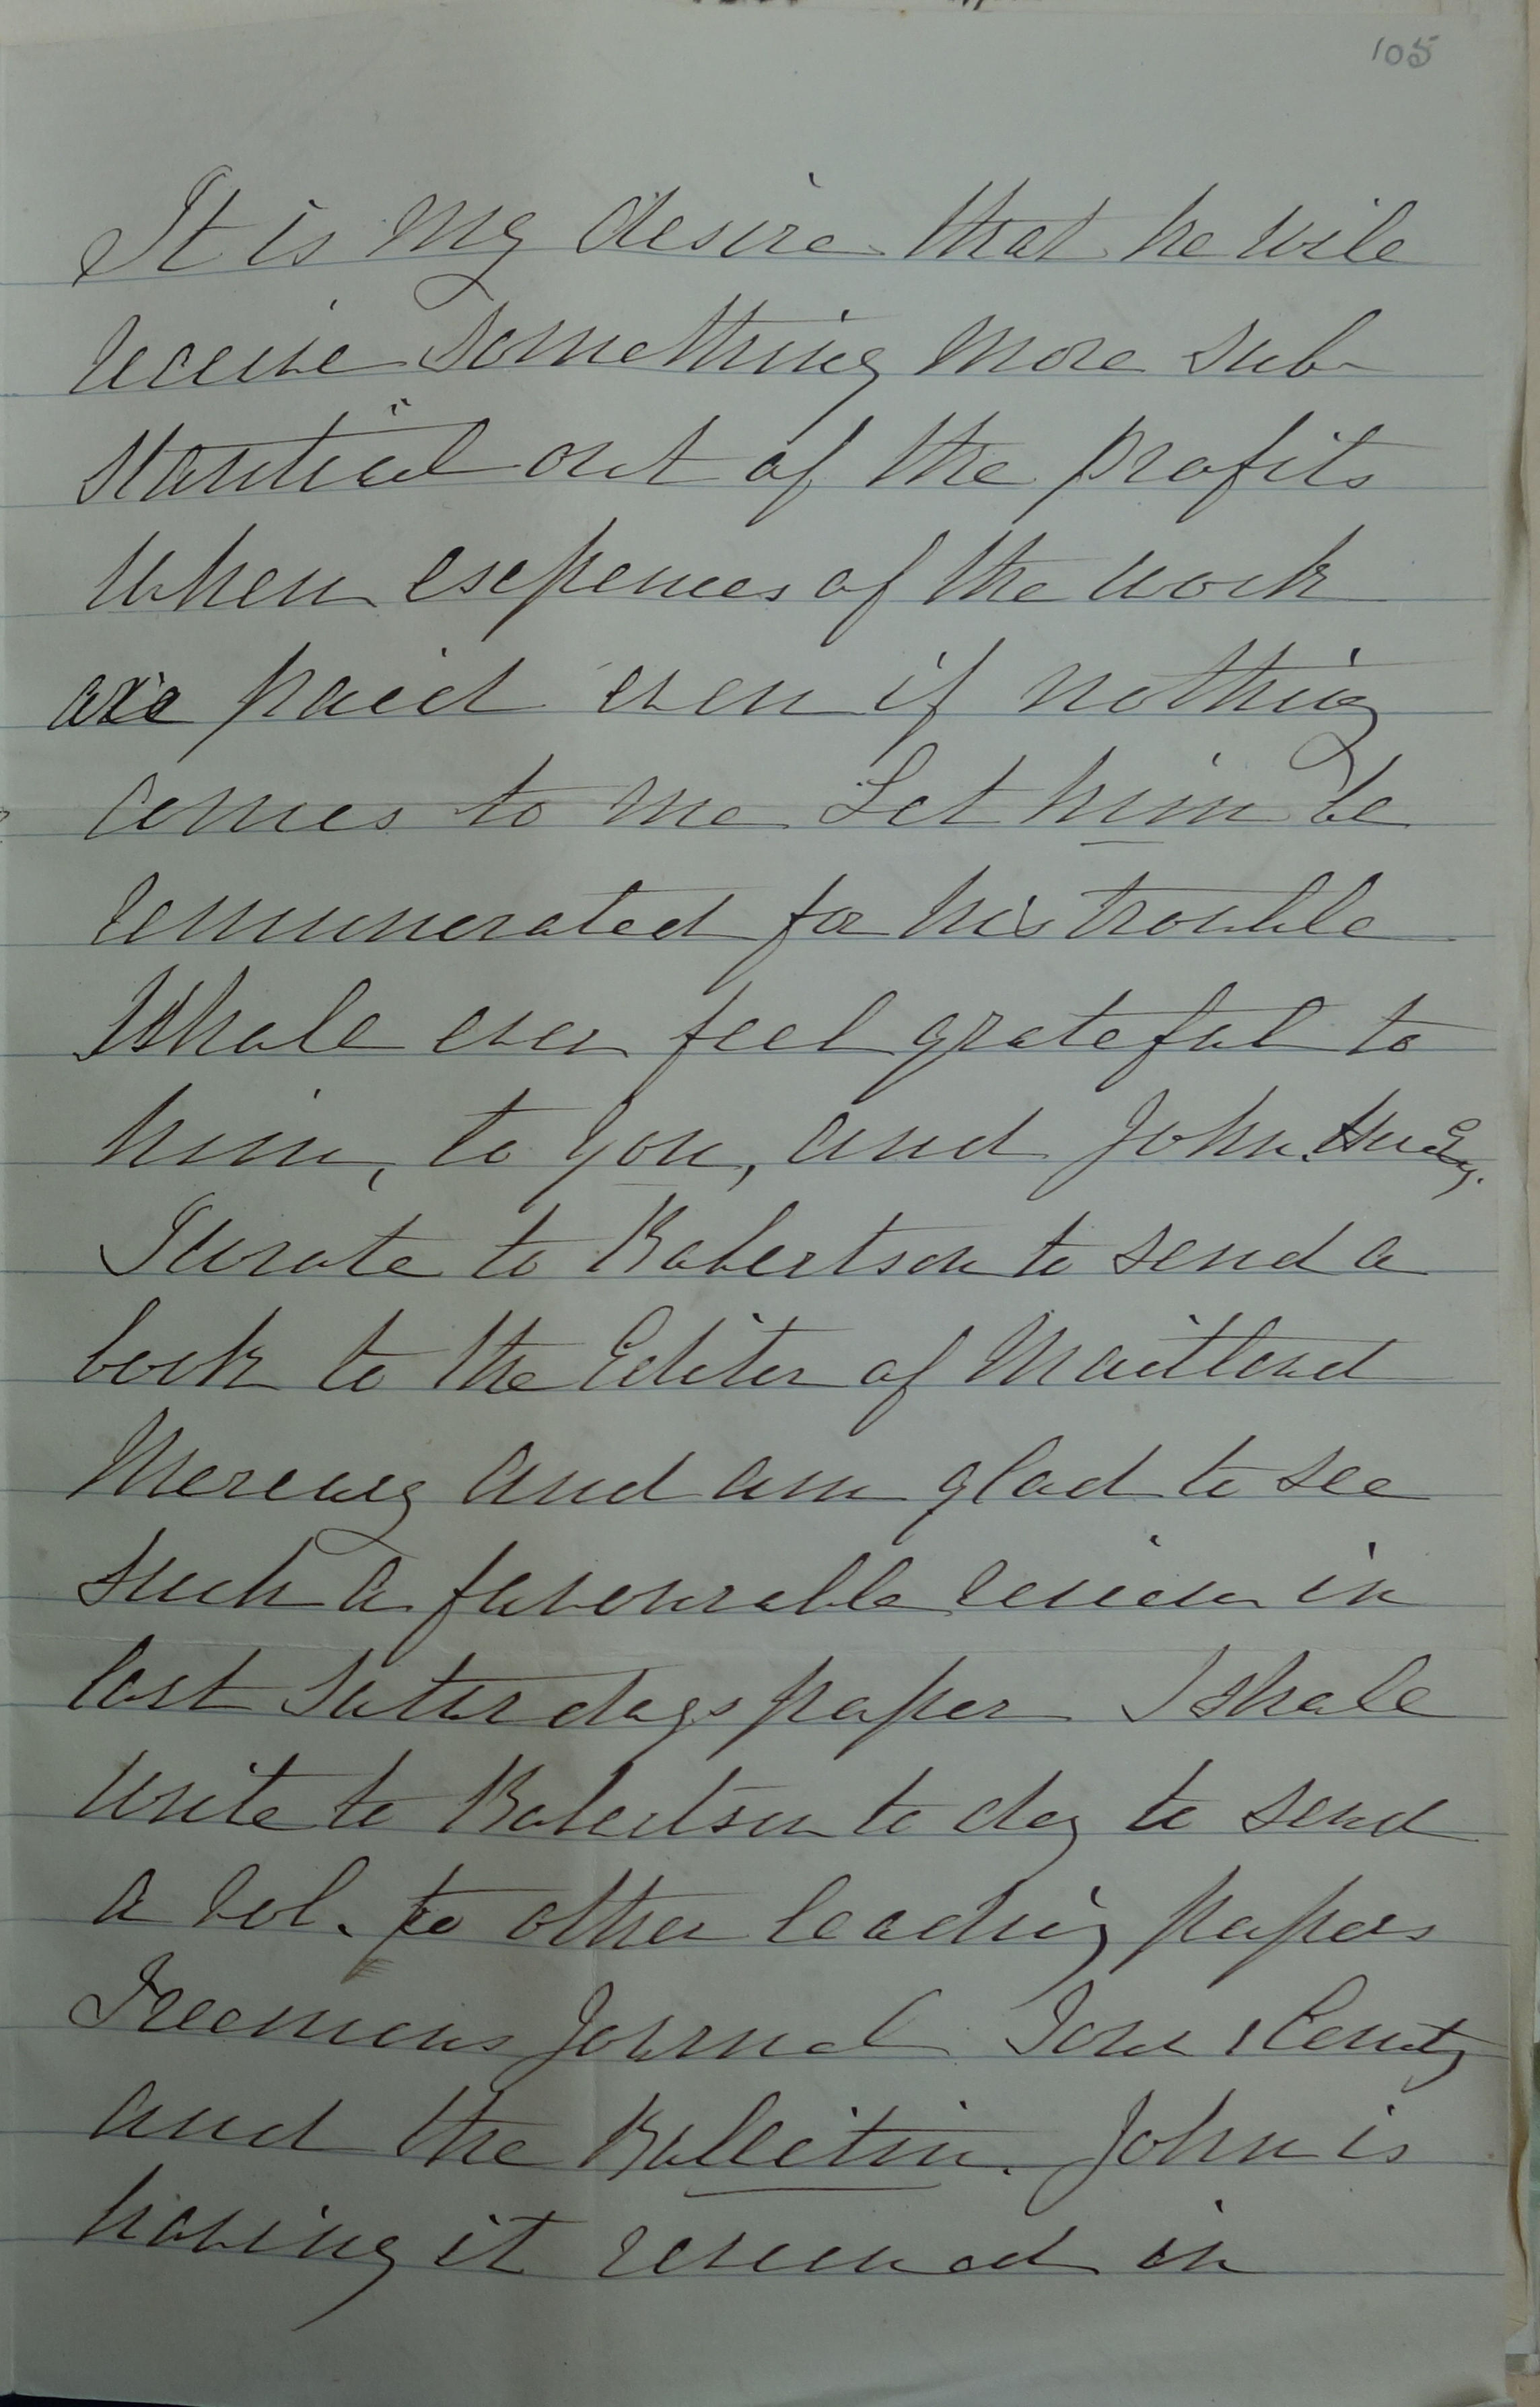 105
It is my desire that he will
receive something more sub-
stantial out of the profits
when expences of the work
are paid even if nothing
comes to me Let him be
remunerated for his trouble
I shall ever feel grateful to
him, to you, and John
I wrote to Robertson to send a
book to the Editor of Maitland
Mercury and am glad to see
such a favourable review in
last Saturdays paper I shall
write to Robertson to day to send
a vol. to other leading papers
Freemans Journal Town & County
and the Bulletin. John is
having it reviewed in